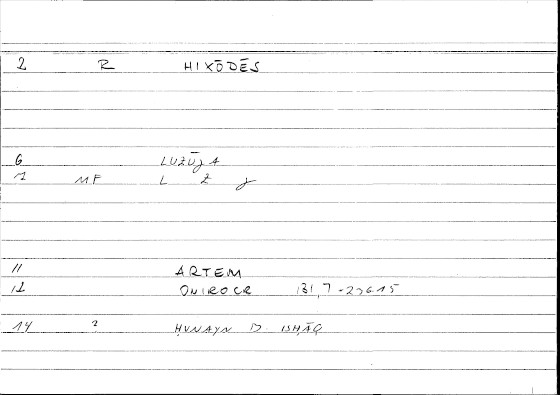 2 R HIXŌDĒS
6 LUZŪJA
1 MF L Z J
11 ARTEM
12 ONIROCR 131,7
14 2 ḤUNAYN B. ISḤĀQ